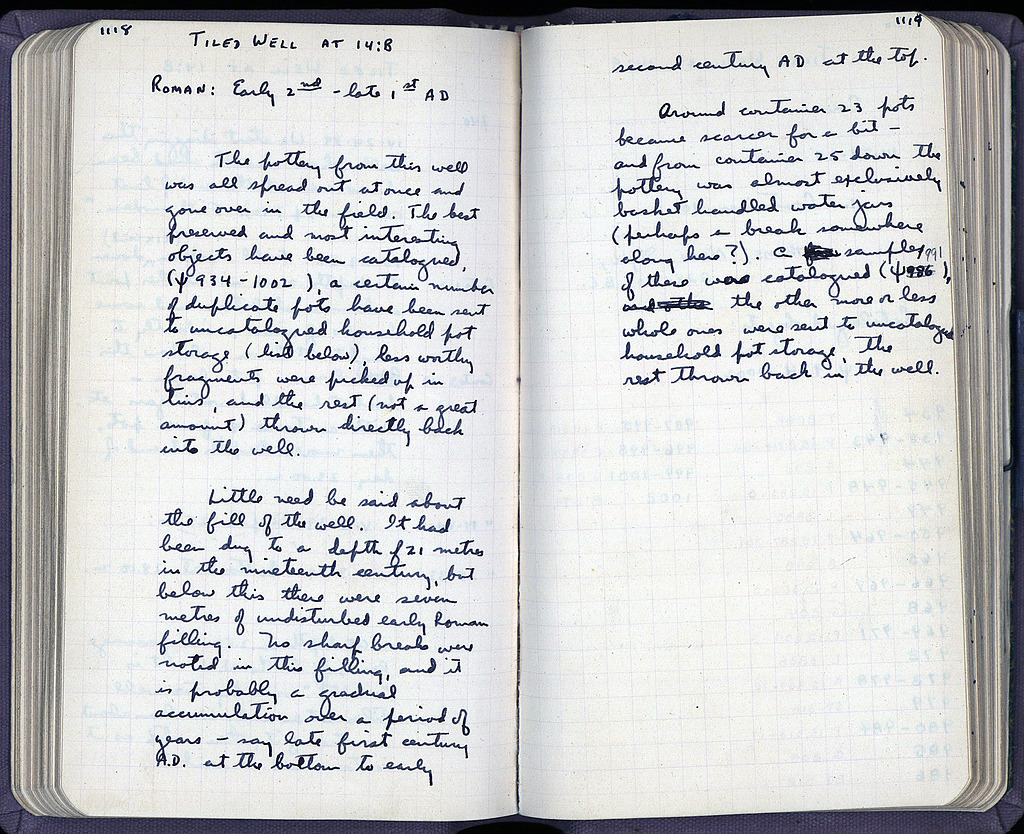 1118
TILED WELL AT 14:B
ROMAN: Early 2nd - late 1st AD
The pottery from this well
was all spread out at once and
gone over in the field. The best
preserved and most interesting
objects have been catalogued,
(ψ 934 - 1002), a certain number
of duplicate pots have been sent
to uncatalogued household pot
storage (list below), less worthy
fragments were picked up in
tins, and the rest (not a great
amount) thrown directly back
into the well.
Little need be said about
the fill of the well. It had
been dug to a depth of 21 metres
in the nineteenth century, but
below this there were seven
metres of undisturbed early Roman
filling. No sharp breaks were
noted in this filling, and it
is probably a gradual
accumulation over a period of
years - say late first century
A.D. at the bottom to early
1119
second century AD at the top.
Around container 23 pots
became scarcer for a bit -
and from container 25 down the
pottery was almost exclusively
basket handled water jars
(perhaps a break somewhere
along here?). A samples
of these were catalogued (ψ 991),
the other more or less
whole ones were sent to uncatalogued
household pot storage, the
rest thrown back in the well.